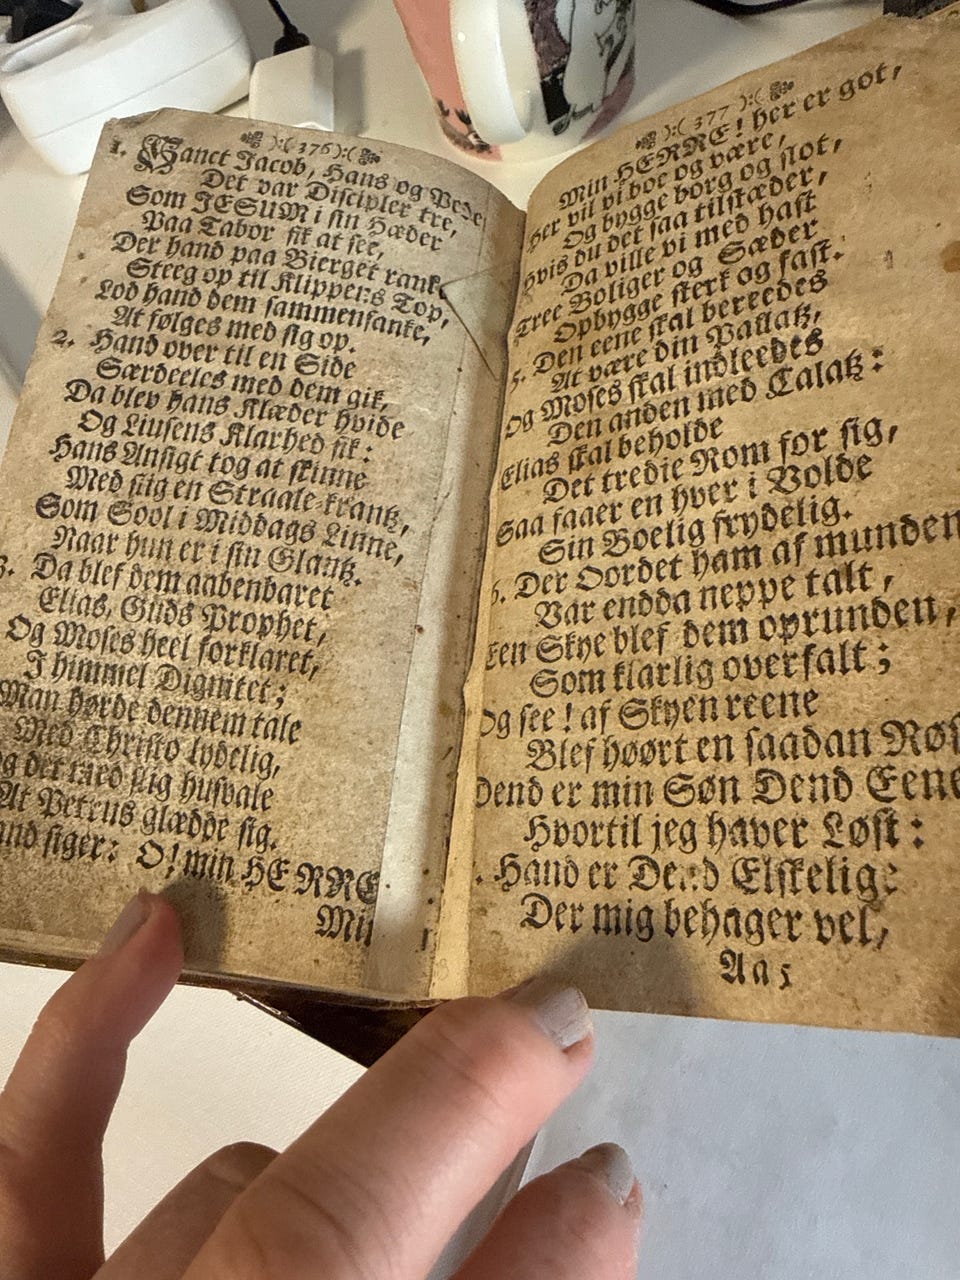 ):( 376 ):(
1. Sanct Jacob, Hans og Pede
Det var Discipler tre,
Som JESUM i sin Hæder
Paa Tabor fik at see,
Der hand paa Bierget rank,
Steeg op til Klippens Top,
Lod hand dem sammensanke,
At følges med sig op.
2. Hand over til en Side
Særdeeles med dem gik,
Da blev hans Klæder hvide
Og Liusens Klarhed fik:
Hans Ansigt tog at skinne
Med slig en Straale-krantz,
Som Sool i Middags Linne,
Naar hun er i sin Glantz.
3. Da blef dem aabenbaret
Elias, Guds Prophet,
Og Moses heel forklaret,
I himmel Dignitet;
Man hørde dennem tale
Med Christo lydelig,
Og det med slig husvale
At Petrus glædde sig.
and siger: O! min HERRE
Min
):( 377 ):(
Min HERRE! her er got,
Her vil vi boe og være,
Og bygge borg og slot,
Hvis du det saa tilstæder,
Da ville vi med hast
Tree Boliger og Sæder
Opbygge sterk og fast.
5. Den eene skal bereedes
At være din Pallatz,
Og Moses skal indleedes
Den anden med Calatz:
Elias skal beholde
Det tredie Rom for sig,
Saa faaer en hver i Volde
Sin Boelig frydelig.
6. Der Oordet ham af munden
Var endda neppe talt,
Een Skye blef dem oprunden,
Som klarlig overfalt;
Og see! af Skyen reene
Blef høørt en saadan Røs
Dend er min Søn Dend Eene
Hvortil jeg haver Løst:
. Hand er Dend Elskelige
Der mig behager vel,
Aa5